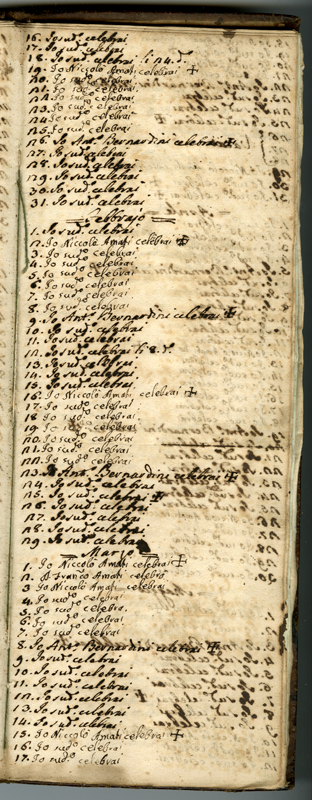 16. Io sud.º celebrai
17. Io sud.º celebrai
18. Io sud.º celebrai li 24. d.º
19. Io Niccolò Amati celebrai ✠
20. Io sud.º celebrai
21. Io sud.º celebrai
22. Io sud.º celebrai
23. Io sud.º celebrai
24. Io sud.º celebrai
25. Io sud.º celebrai
26. Io Ant.º Bernardini celebrai ✠
27. Io sud.º celebrai
28. Io sud.º celebrai
29. Io sud.º celebrai
30. Io sud.º celebrai
31. Io sud.º celebrai
= Febbrajo =
1. Io sud.º celebrai
2. Io Niccolò Amati celebrai ✠
3. Io sud.º celebrai
4. Io sud.º celebrai
5. Io sud.º celebrai
6. Io sud.º celebrai
7. Io sud.º celebrai
8. Io sud.º celebrai
9. Io Ant.º Bernardini celebrai ✠
10. Io sud.º celebrai
11. Io sud.º celebrai
12. Io sud.º celebrai li 8.
13. Io sud.º celebrai
14. Io sud.º celebrai
15. Io sud.º celebrai
16. Io Niccolò Amati celebrai ✠
17. Io sud.º celebrai
18. Io sud.º celebrai
19. Io sud.º celebrai
20. Io sud.º celebrai
21. Io sud.º celebrai
22. Io sud.º celebrai
23. Io Ant.º Bernardini celebrai ✠
24. Io sud.º celebrai
25. Io sud.º celebrai ✠
26. Io sud.º celebrai
27. Io sud.º celebrai
28. Io sud.º celebrai
29. Io sud.º celebrai
= Marzo =
1. Io Niccolò Amati celebrai ✠
2. Franco Amati celebrò
3. Io Niccolò Amati celebrai
4. Io sud.º celebrai
5. Io sud.º celebrai
6. Io sud.º celebrai
7. Io sud.º celebrai
8. Io Ant.º Bernardini celebrai ✠
9. Io sud.º celebrai
10. Io sud.º celebrai
11. Io sud.º celebrai
12. Io sud.º celebrai
13. Io sud.º celebrai
14. Io sud.º celebrai
15. Io Niccolò Amati celebrai ✠
16. Io sud.º celebrai
17. Io sud.º celebrai